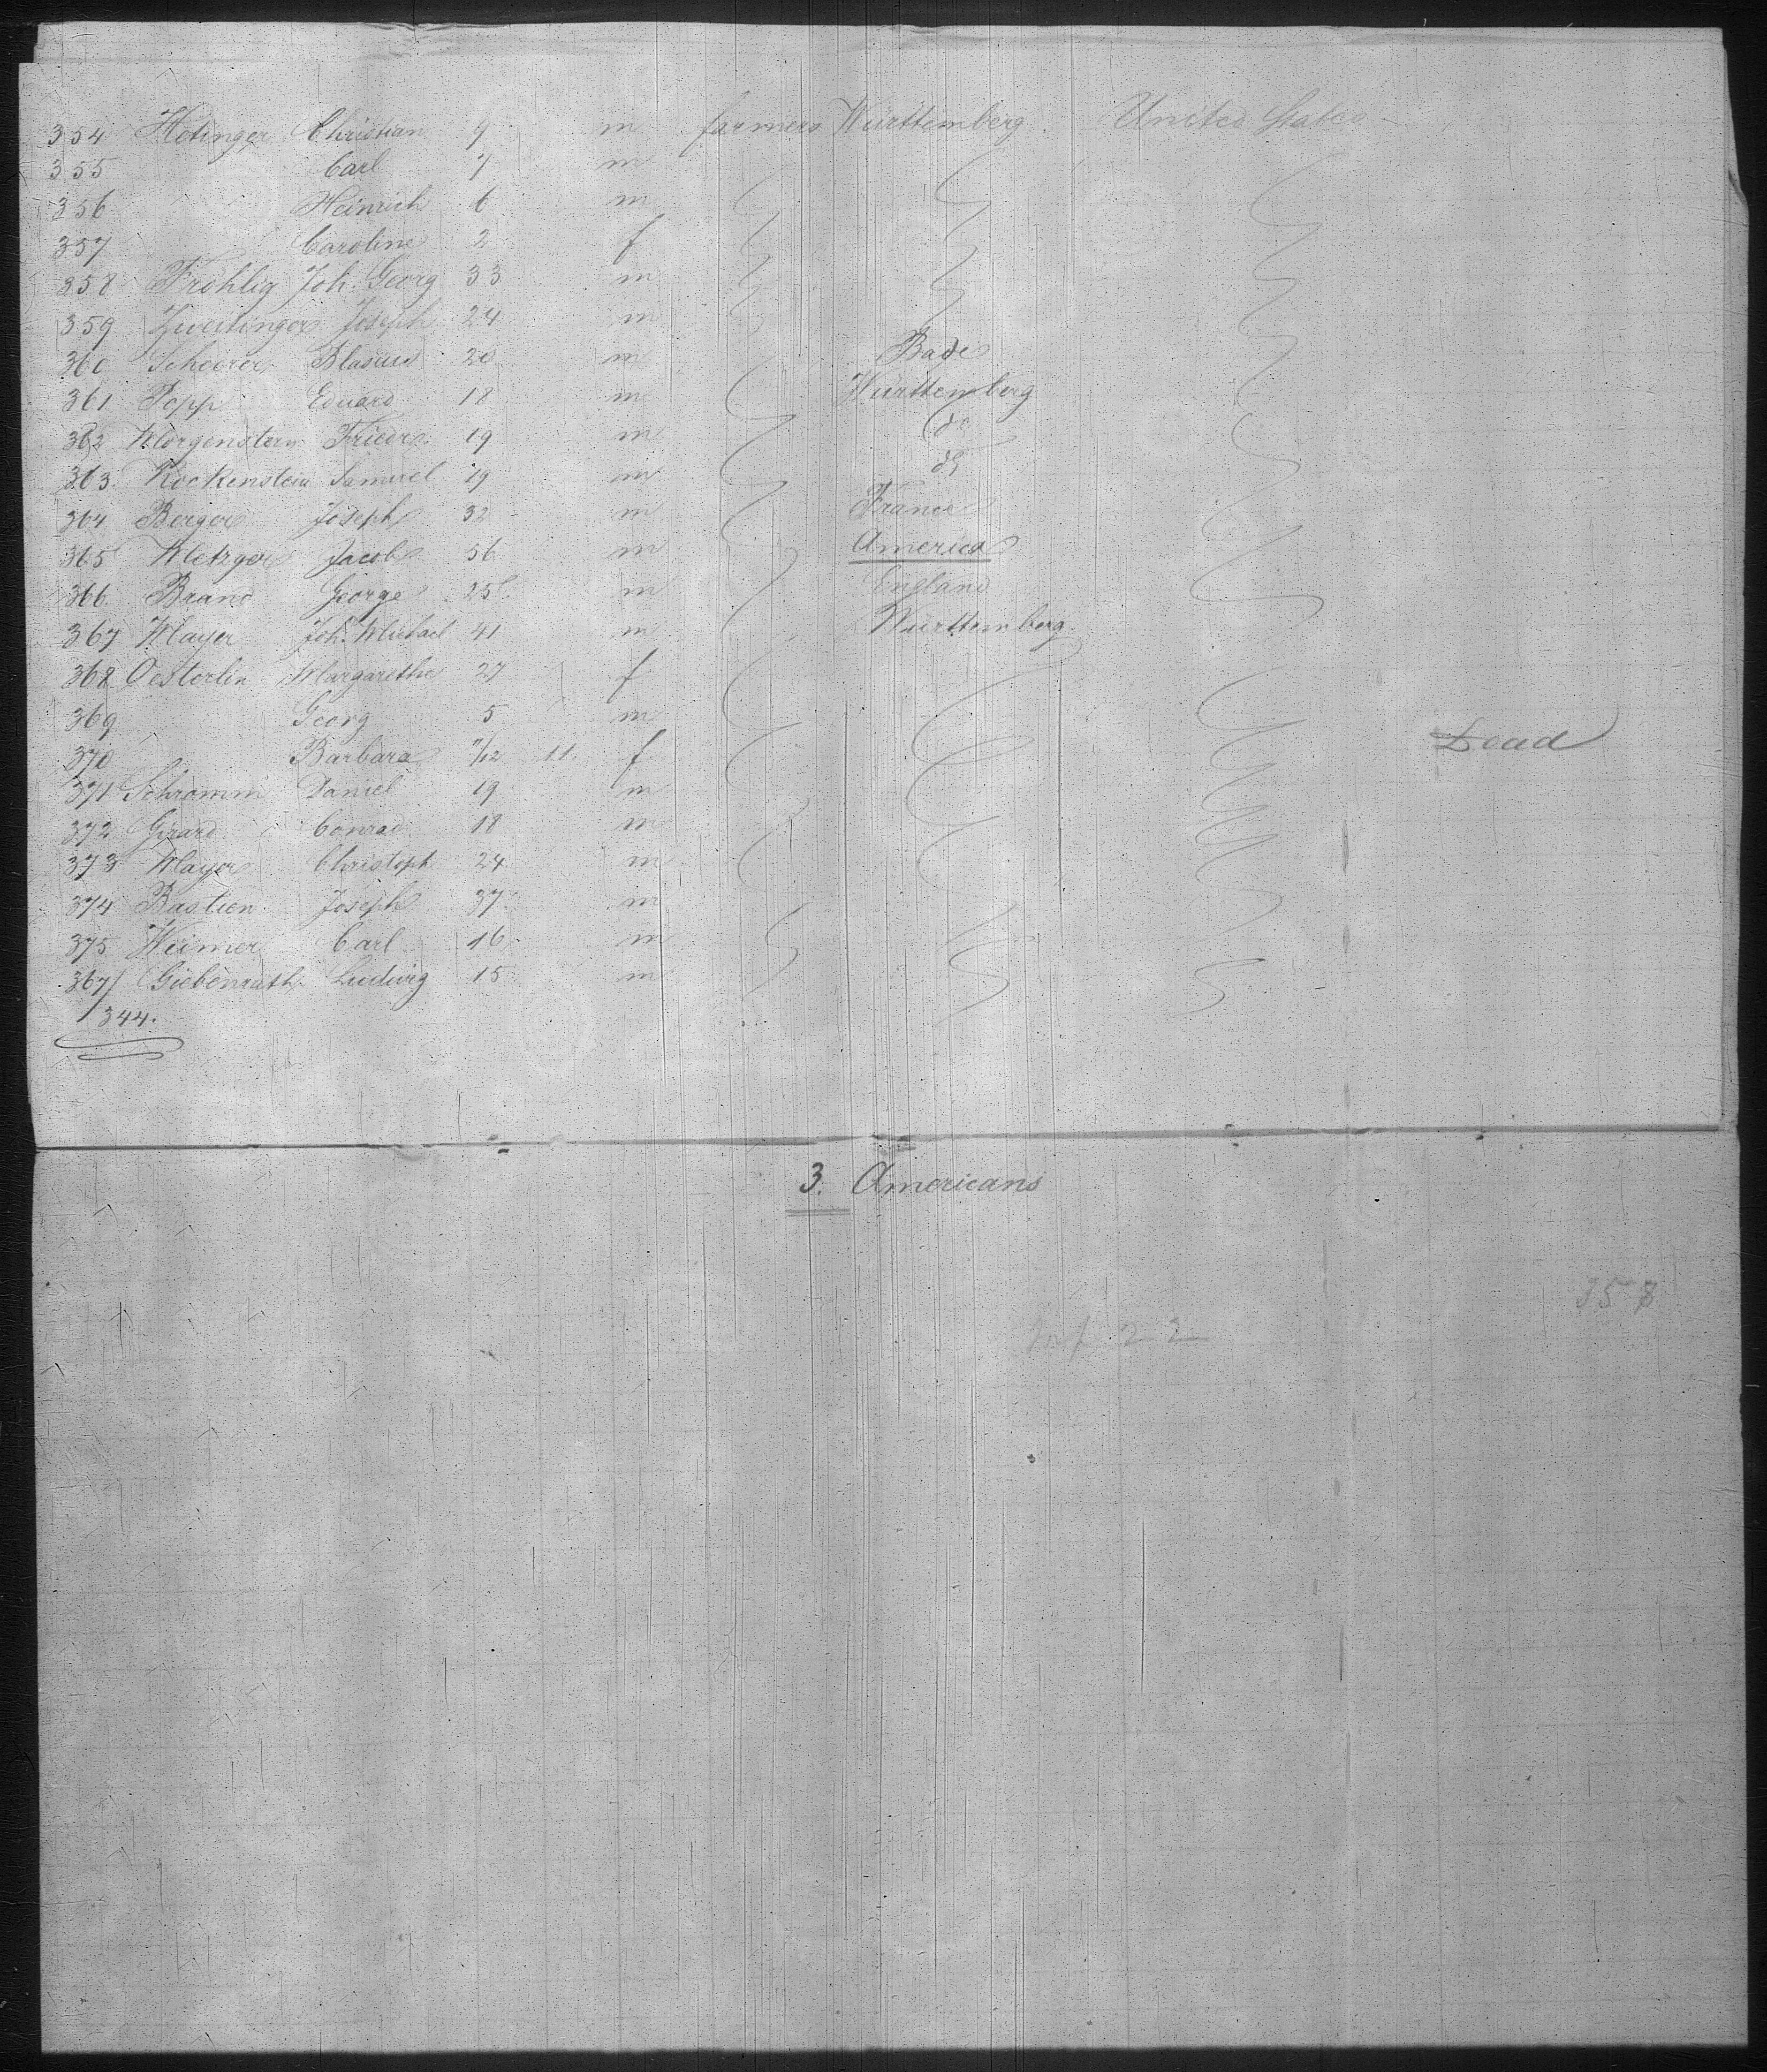 354 Hotinger Christian 9 m farmers Württemberg United States
355 Carl 7 m
356 Heinrich 6 m
357 Caroline 2 f
358 Frohlig Joh. Georg 33 m
359 Zweitinger Joseph 24 m
360 Scheirer Blasius 20 m Bade
361 Popp Eduard 18 m Württemberg
362 Morgenstern Friedr. 19 m do
363. Rockenstein Samuel 19 m do
364 Berger Joseph 32 m France
365 Metzger Jacob 56 m America
366 Brand George 25 m England
367 Mayer Joh. Michael 41 m Württemberg
368 Oesterlin Margarethe 27 f
369 Georg 5 m
370 Barbara 11/12 11. f Dead
371 Schramm Daniel 19 m
372 Girard Conrad 18 m
373 Mayer Christoph 24 m
374 Bastien Joseph 37 m
375 Weimer Carl 16 m
367/ Giebenrath Ludwig 15 m
344.
3. Americans
358
22